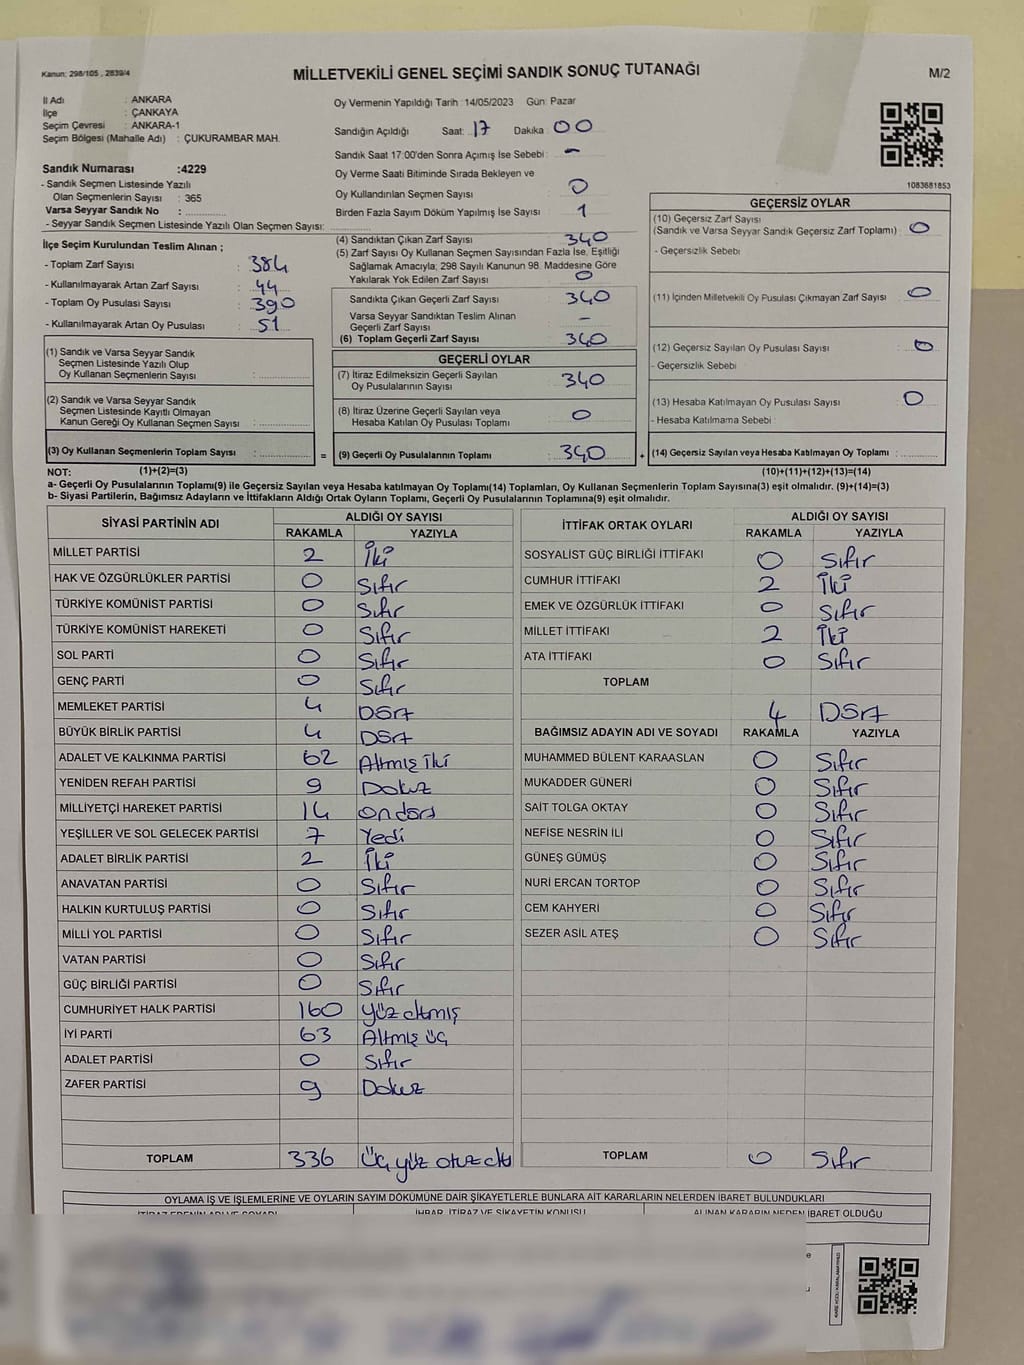 Kanun: 298/105 , 2839/4
MİLLETVEKİLİ GENEL SEÇİMİ SANDIK SONUÇ TUTANAĞI
M/2
İl Adı : ANKARA
İlçe : ÇANKAYA
Seçim Çevresi : ANKARA-1
Seçim Bölgesi (Mahalle Adı) : ÇUKURAMBAR MAH.
Sandık Numarası :4229
- Sandık Seçmen Listesinde Yazılı
Olan Seçmenlerin Sayısı : 365
Varsa Seyyar Sandık No :
- Seyyar Sandık Seçmen Listesinde Yazılı Olan Seçmen Sayısı:
İlçe Seçim Kurulundan Teslim Alınan ;
- Toplam Zarf Sayısı : 384
- Kullanılmayarak Artan Zarf Sayısı : 44
- Toplam Oy Pusulası Sayısı : 390
- Kullanılmayarak Artan Oy Pusulası : 51
(1) Sandık ve Varsa Seyyar Sandık
Seçmen Listesinde Yazılı Olup
Oy Kullanan Seçmenlerin Sayısı :
(2) Sandık ve Varsa Seyyar Sandık
Seçmen Listesinde Kayıtlı Olmayan
Kanun Gereği Oy Kullanan Seçmen Sayısı :
(3) Oy Kullanan Seçmenlerin Toplam Sayısı : =
Oy Vermenin Yapıldığı Tarih :14/05/2023 Gün: Pazar
Sandığın Açıldığı Saat: 17 Dakika : 00
Sandık Saat 17:00'den Sonra Açımış İse Sebebi : -
Oy Verme Saati Bitiminde Sırada Bekleyen ve
Oy Kullandırılan Seçmen Sayısı : 0
Birden Fazla Sayım Döküm Yapılmış İse Sayısı : 1
(4) Sandıktan Çıkan Zarf Sayısı : 340
(5) Zarf Sayısı Oy Kullanan Seçmen Sayısından Fazla İse, Eşitliği
Sağlamak Amacıyla; 298 Sayılı Kanunun 98. Maddesine Göre
Yakılarak Yok Edilen Zarf Sayısı : 0
Sandıkta Çıkan Geçerli Zarf Sayısı : 340
Varsa Seyyar Sandıktan Teslim Alınan
Geçerli Zarf Sayısı : -
(6) Toplam Geçerli Zarf Sayısı : 340
GEÇERLİ OYLAR
(7) İtiraz Edilmeksizin Geçerli Sayılan
Oy Pusulalarının Sayısı : 340
(8) İtiraz Üzerine Geçerli Sayılan veya
Hesaba Katılan Oy Pusulası Toplamı : 0
(9) Geçerli Oy Pusulalarının Toplamı : 340 +
1083681853
GEÇERSİZ OYLAR
(10) Geçersiz Zarf Sayısı
(Sandık ve Varsa Seyyar Sandık Geçersiz Zarf Toplamı) : 0
- Geçersizlik Sebebi
(11) İçinden Milletvekili Oy Pusulası Çıkmayan Zarf Sayısı : 0
(12) Geçersiz Sayılan Oy Pusulası Sayısı : 0
- Geçersizlik Sebebi
(13) Hesaba Katılmayan Oy Pusulası Sayısı : 0
- Hesaba Katılmama Sebebi :
(14) Geçersiz Sayılan veya Hesaba Katılmayan Oy Toplamı :
NOT: (1)+(2)=(3) (10)+(11)+(12)+(13)=(14)
a- Geçerli Oy Pusulalarının Toplamı(9) ile Geçersiz Sayılan veya Hesaba katılmayan Oy Toplamı(14) Toplamları, Oy Kullanan Seçmenlerin Toplam Sayısına(3) eşit olmalıdır. (9)+(14)=(3)
b- Siyasi Partilerin, Bağımsız Adayların ve İttifakların Aldığı Ortak Oyların Toplamı, Geçerli Oy Pusulalarının Toplamına(9) eşit olmalıdır.
SİYASİ PARTİNİN ADI ALDIĞI OY SAYISI
RAKAMLA YAZIYLA
MİLLET PARTİSİ 2 İki
HAK VE ÖZGÜRLÜKLER PARTİSİ 0 Sıfır
TÜRKİYE KOMÜNİST PARTİSİ 0 Sıfır
TÜRKİYE KOMÜNİST HAREKETİ 0 Sıfır
SOL PARTİ 0 Sıfır
GENÇ PARTİ 0 Sıfır
MEMLEKET PARTİSİ 4 Dört
BÜYÜK BİRLİK PARTİSİ 4 Dört
ADALET VE KALKINMA PARTİSİ 62 Altmış iki
YENİDEN REFAH PARTİSİ 9 Dokuz
MİLLİYETÇİ HAREKET PARTİSİ 14 ondört
YEŞİLLER VE SOL GELECEK PARTİSİ 7 Yedi
ADALET BİRLİK PARTİSİ 2 İki
ANAVATAN PARTİSİ 0 Sıfır
HALKIN KURTULUŞ PARTİSİ 0 Sıfır
MİLLİ YOL PARTİSİ 0 Sıfır
VATAN PARTİSİ 0 Sıfır
GÜÇ BİRLİĞİ PARTİSİ 0 Sıfır
CUMHURİYET HALK PARTİSİ 160 yüz altmış
İYİ PARTİ 63 Altmış üç
ADALET PARTİSİ 0 Sıfır
ZAFER PARTİSİ 9 Dokuz
TOPLAM 336 Üç yüz otuz altı
İTTİFAK ORTAK OYLARI ALDIĞI OY SAYISI
RAKAMLA YAZIYLA
SOSYALİST GÜÇ BİRLİĞİ İTTİFAKI 0 Sıfır
CUMHUR İTTİFAKI 2 İki
EMEK VE ÖZGÜRLÜK İTTİFAKI 0 Sıfır
MİLLET İTTİFAKI 2 İki
ATA İTTİFAKI 0 Sıfır
TOPLAM
4 Dört
BAĞIMSIZ ADAYIN ADI VE SOYADI RAKAMLA YAZIYLA
MUHAMMED BÜLENT KARAASLAN 0 Sıfır
MUKADDER GÜNERİ 0 Sıfır
SAİT TOLGA OKTAY 0 Sıfır
NEFİSE NESRİN İLİ 0 Sıfır
GÜNEŞ GÜMÜŞ 0 Sıfır
NURİ ERCAN TORTOP 0 Sıfır
CEM KAHYERİ 0 Sıfır
SEZER ASİL ATEŞ 0 Sıfır
TOPLAM 0 Sıfır
OYLAMA İŞ VE İŞLEMLERİNE VE OYLARIN SAYIM DÖKÜMÜNE DAİR ŞİKAYETLERLE BUNLARA AİT KARARLARIN NELERDEN İBARET BULUNDUKLARI
İTİRAZ EDENİN ADI VE SOYADI İHBAR, İTİRAZ VE ŞİKAYETİN KONUSU ALINAN KARARIN NEDEN İBARET OLDUĞU